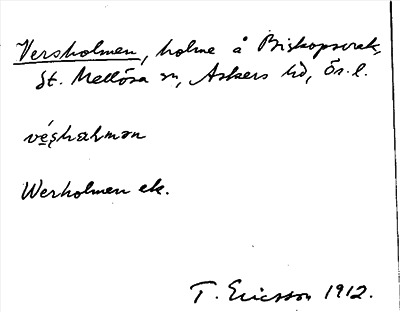 Versholmen, holme å Biskopsvrak,
St. Mellösa sn, Askers hd, Ör. l.
Werholmen ek.
T. Ericsson 1912.